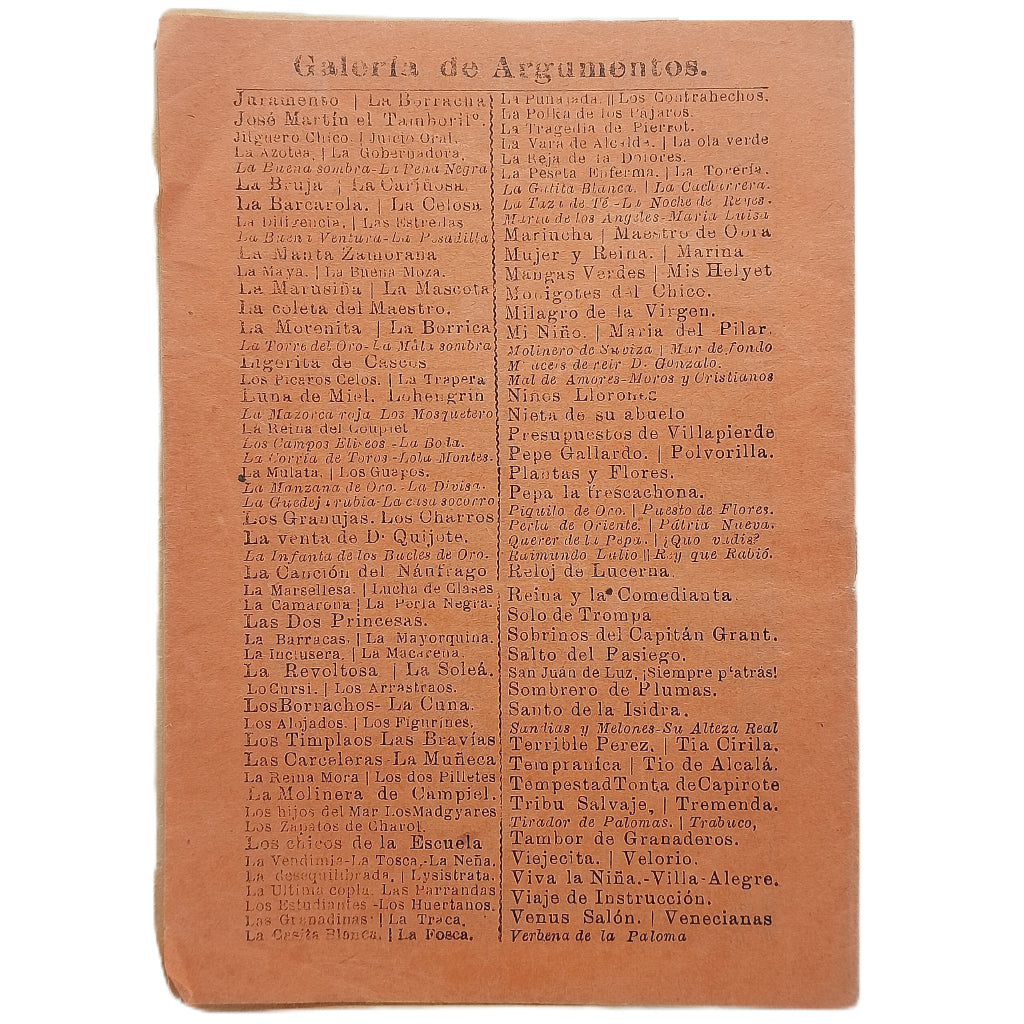 Galería de Argumentos.
Juramento | La Borracha
José Martín el Tamborilº.
Jilguero Chico. | Juicio Oral.
La Azotea. | La Gobernadora.
La Buena sombra-La Peña Negra
La Bruja | La Cariñosa.
La Barcarola. | La Celosa
La Diligencia. | Las Estrellas
La Buena Ventura-La Pesadilla
La Manta Zamorana
La Maya. | La Buena Moza.
La Marusiña | La Mascota
La coleta del Maestro.
La Morenita | La Borrica
La Torre del Oro-La Mala sombra
Ligerita de Cascos
Los Pícaros Celos. | La Trapera
Luna de Miel. Lohengrin
La Mazorca roja Los Mosquetero
La Reina del Couplet
Los Campos Elíseos-La Boda.
La Corría de Toros-Lola Montes.
La Mulata. | Los Guapos.
La Manzana de Oro.-La Divisa.
La Guedeja rubia-La casa socorro
Los Granujas. Los Charros
La venta de D. Quijote.
La Infanta de los Bucles de Oro.
La Canción del Náufrago
La Marsellesa. | Lucha de Clases
La Camarona | La Perla Negra.
Las Dos Princesas.
La Barracas. | La Mayorquina.
La Inclusera. | La Macarena.
La Revoltosa | La Soleá.
Lo Cursi. | Los Arrastraos.
Los Borrachos- La Cuna.
Los Alojados. | Los Figurines.
Los Timplaos Las Bravías
Las Carceleras-La Muñeca
La Reina Mora | Los dos Pilletes
La Molinera de Campiel.
Los hijos del Mar LosMadgyares
Los Zapatos de Charol.
Los chicos de la Escuela
La Vendimia-La Tosca.-La Neña.
La desequilibrada. | Lysistrata.
La Ultima copla. Las Parrandas
Los Estudiantes-Los Huertanos.
Las Granadinas | La Traca.
La Casita Blanca. | La Fosca.
La Puñalada. || Los Contrahechos.
La Polka de los Pájaros.
La Tragedia de Pierrot.
La Vara de Alcalde. | La ola verde
La Reja de la Dolores.
La Peseta Enferma. | La Torería.
La Gatita Blanca. | La Cacharrera.
La Taza de Té-La Noche de Reyes.
María de los Angeles-María Luisa
Maruicha | Maestro de Obra
Mujer y Reina. | Marina
Mangas Verdes | Mis Helyet
Monigotes del Chico.
Milagro de la Virgen.
Mi Niño. | María del Pilar.
Molinero de Suviza | Mar de fondo
M' aceis de reir D. Gonzalo.
Mal de Amores-Moros y Cristianos
Niños Llorones
Nieta de su abuelo
Presupuestos de Villapierde
Pepe Gallardo. | Polvorilla.
Plantas y Flores.
Pepa la frescachona.
Piquito de Oro. | Puesto de Flores.
Perla de Oriente. | Pátria Nueva.
Querer de la Pepa. | ¿Quo vadis?
Raimundo Lulio || Rey que Rabió.
Reloj de Lucerna.
Reina y la Comedianta.
Solo de Trompa
Sobrinos del Capitán Grant.
Salto del Pasiego.
San Juan de Luz. ¡Siempre p'atrás!
Sombrero de Plumas.
Santo de la Isidra.
Sandias y Melones-Su Alteza Real
Terrible Perez. | Tia Cirila.
Tempranica | Tio de Alcalá.
TempestadTonta deCapirote
Tribu Salvaje, | Tremenda.
Tirador de Palomas. | Trabuco,
Tambor de Granaderos.
Viejecita. | Velorio.
Viva la Niña.-Villa-Alegre.
Viaje de Instrucción.
Venus Salón. | Venecianas
Verbena de la Paloma